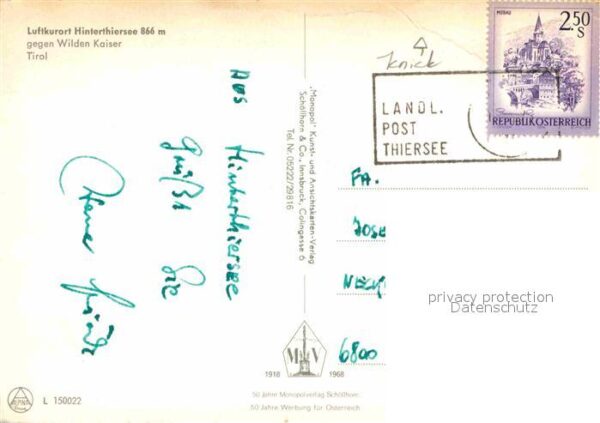 Luftkurort Hinterthiersee 866 m
gegen Wilden Kaiser
Tirol
Knick
MURAU
2.50 S
REPUBLIK ÖSTERREICH
LANDL.
POST
THIERSEE
AUS
Hinterthiersee
grüßt
Sie
„Monopol" Kunst- und Ansichtskarten-Verlag
Schöllhorn & Co., Innsbruck, Colingasse 6
Tel. Nr. 05222/29816
FA.
JOSE
6800
privacy protection
Datenschutz
M V
1918 1968
50 Jahre Monopolverlag Schöllhorn
50 Jahre Werbung für Österreich
L 150022